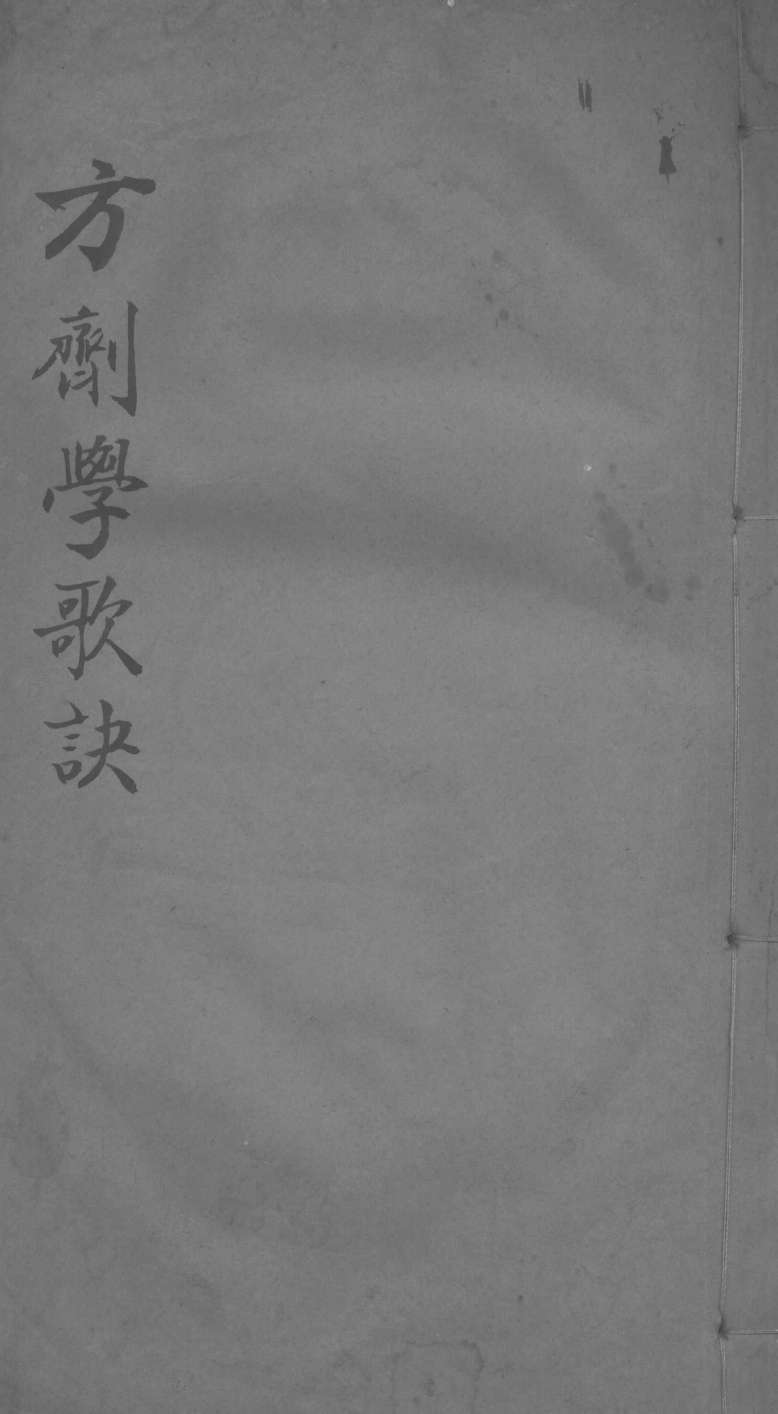 方劑學歌訣